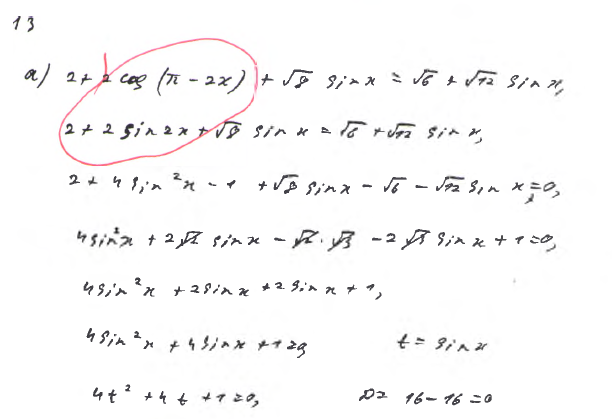 13
а) 2 + 2 cos (π − 2x) + √8 sin x = √6 + √12 sin x,
2 + 2 sin 2x + √8 sin x = √6 + √12 sin x,
2 + 4 sin²x − 1 + √8 sin x − √6 − √12 sin x = 0,
4 sin²x + 2√2 sin x − √2 · √3 − 2√3 sin x + 1 = 0,
4 sin²x + 2 sin x + 2 sin x + 1,
4 sin²x + 4 sin x + 1 = 0 t = sin x
4t² + 4t + 1 = 0, D = 16 − 16 = 0